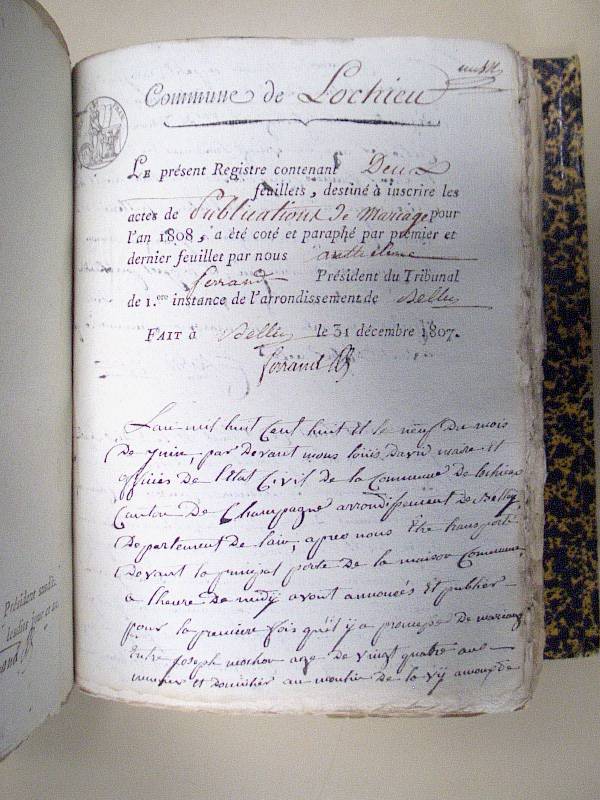 Commune de Lochieu
LE présent Registre contenant Deux
feuillets, destiné à inscrire les
actes de Publications de Mariage pour
l'an 1808, a été coté et paraphé par premier et
dernier feuillet par nous anthelme
ferrand Président du Tribunal
de 1.ere instance de l'arrondissement de Belley
FAIT à Belley le 31 décembre 1807.
ferrand
Lan mil huit Cent huit Et le neuf du mois
De juin, par devant nous louis David maire Et
officier de l'Etat Civil de la Commune de lochieu
Canton De Champagne arrondissement de Belley
Departement de lain, apres nous Etre transporté
Devant la principal porte de la maison Commune
a lheure de midy avont annoncés Et publier
pour la premiere fois quil y a promesse de mariage
Entre joseph mochon age de vingt quatre ans
et domicilier au moulin de la
Président